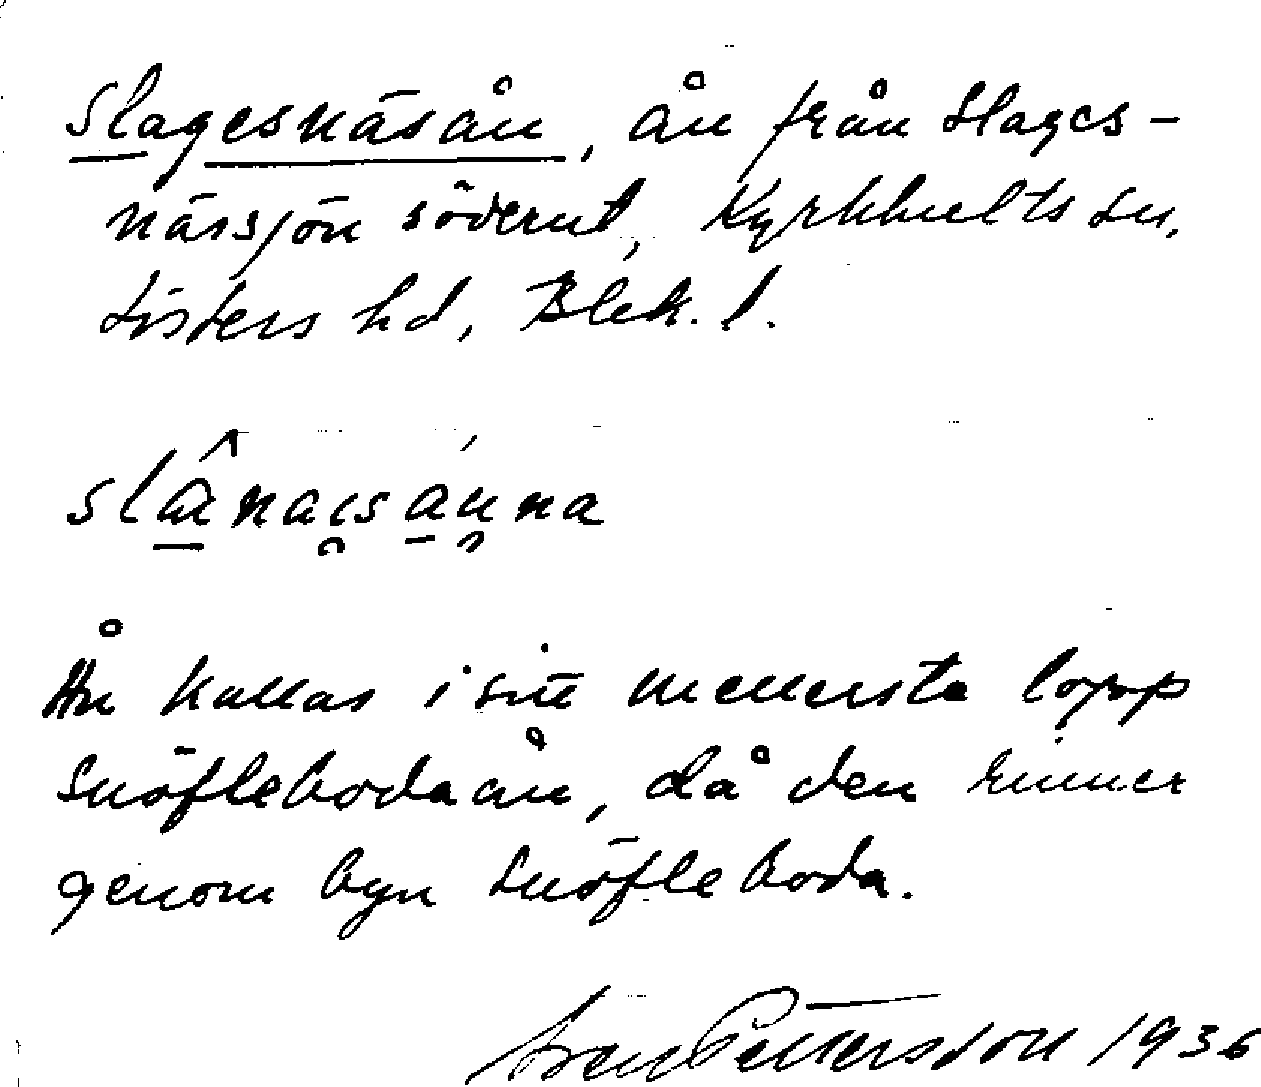 Slagesnäsån, ån från Slages-
nässjön söderut, Kyrkhults sn,
Listers hd, Blek. l.
Ån kallas i sitt mellersta lopp
Snöflebodaån, då den rinner
genom byn Snöfleboda.
Sven Pettersson 1936